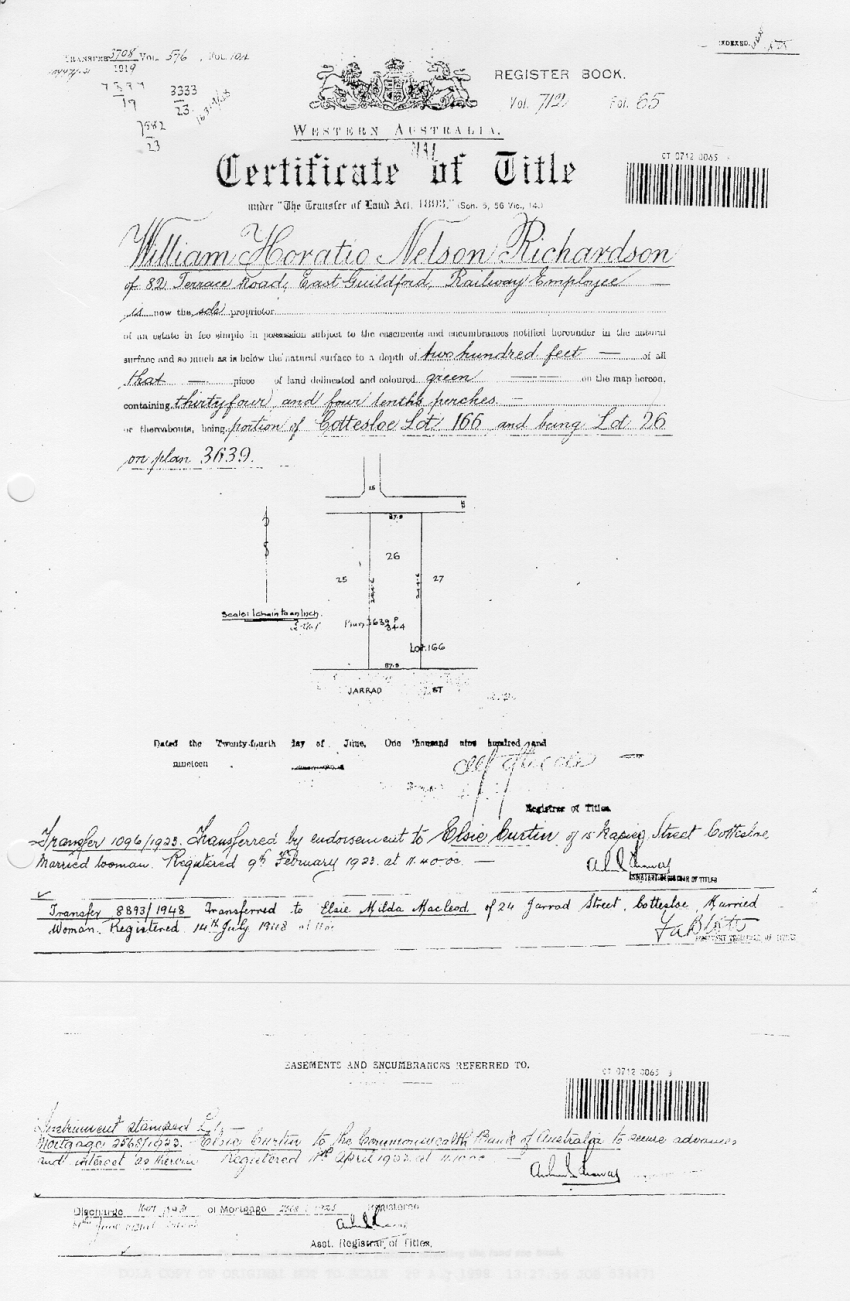 TRANSFER 3708 VOL. 576, FOL. 104
1919
INDEXED
7337
19
3333
23
7982
23
REGISTER BOOK.
Vol. 712 Fol. 65
WESTERN AUSTRALIA.
CT 0712 0065
Certificate of Title
under "The Transfer of Land Act, 1893," (Sch. 5, 56 Vic., 14.)
William Horatio Nelson Richardson
of 82 Terrace Road, East Guildford, Railway Employee
is now the sole proprietor
of an estate in fee simple in possession subject to the easements and encumbrances notified hereunder in the natural
surface and so much as is below the natural surface to a depth of two hundred feet — of all
that — piece of land delineated and coloured green — on the map hereon,
containing thirty four and four tenths perches —
or thereabouts, being portion of Cottesloe Lot 166 and being Lot 26
on plan 3639.
15
26
25
27
Scale: 1 chain to an inch.
Plan 3639 P
34.4
Lot 166
JARRAD ST
Dated the Twenty-fourth day of June, One thousand nine hundred and
nineteen
Registrar of Titles
Transfer 1096/1923. Transferred by endorsement to Elsie Curtin of 15 Napier Street Cottesloe
Married Woman. Registered 9th February 1923 at 11.40 oc. —
ASSISTANT REGISTRAR OF TITLES
Transfer 8893/1948 Transferred to Elsie Milda Macleod of 24 Jarrad Street, Cottesloe, Married
Woman. Registered 14th July 1948 at
ASSISTANT REGISTRAR OF TITLES
EASEMENTS AND ENCUMBRANCES REFERRED TO.
CT 0712 0065
Instrument stamped
Mortgage 2568/1923. Elsie Curtin to the Commonwealth Bank of Australia to secure advances
and interest as therein Registered April 1923 at
Discharge of Mortgage 2568/1923 Registered
Asst. Registrar of Titles.